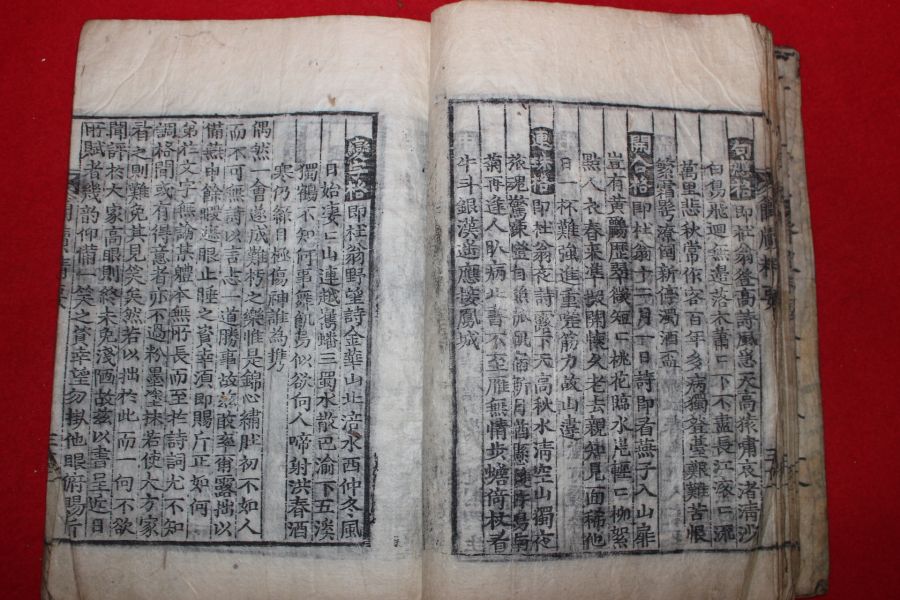 句應格即杜翁登高詩風急天高猿嘯哀渚淸沙
白鳥飛迴無邊落木蕭〻下不盡長江滚〻流
萬里悲秋常作客百年多病獨登臺艱難苦恨
繁霜鬂潦倒新停濁酒盃
開合格即杜翁十二月一日詩即看燕子入山扉
豈有黃鸝歷翠微短〻桃花臨水岸輕〻柳絮
點人衣春來準擬開懷久老去親知見面稀他
日一杯難強進重嗟筋力故山違
連珠格即杜翁夜詩露下天高秋水淸空山獨夜
旅魂驚疎燈自照孤帆宿新月猶懸雙杵鳴南
菊再逢人臥病北書不至鴈無情步蟾倚杖看
牛斗銀漢遙應接鳳城
變字格即杜翁野望詩金華山北涪水西仲冬風
日始凄〻山連越嶲蟠三蜀水散巴渝下五溪
獨鶴不知何事舞飢烏似欲向人啼射洪春酒
寒仍綠目極傷神誰爲携
偶然一會遂成難朽之樂惟是錦心繡肚初不如人
而不可無詩以言志一道勝事故玆敢率爾露拙以
備無申餘暇遮眼止睡之資幸須即賜斤正如何
第在文字無論某體本無所長而至於詩詞尤不知
調格間或有得意者亦不過粉墨塗抹若使大方家
看之則難免其見笑矣然若以拙於此而一向不欲
聞評於大家高眼則終未免淺陋故玆以書呈近日
所賦者幾韵仰備一笑之資幸望勿掛他眼俯賜斤